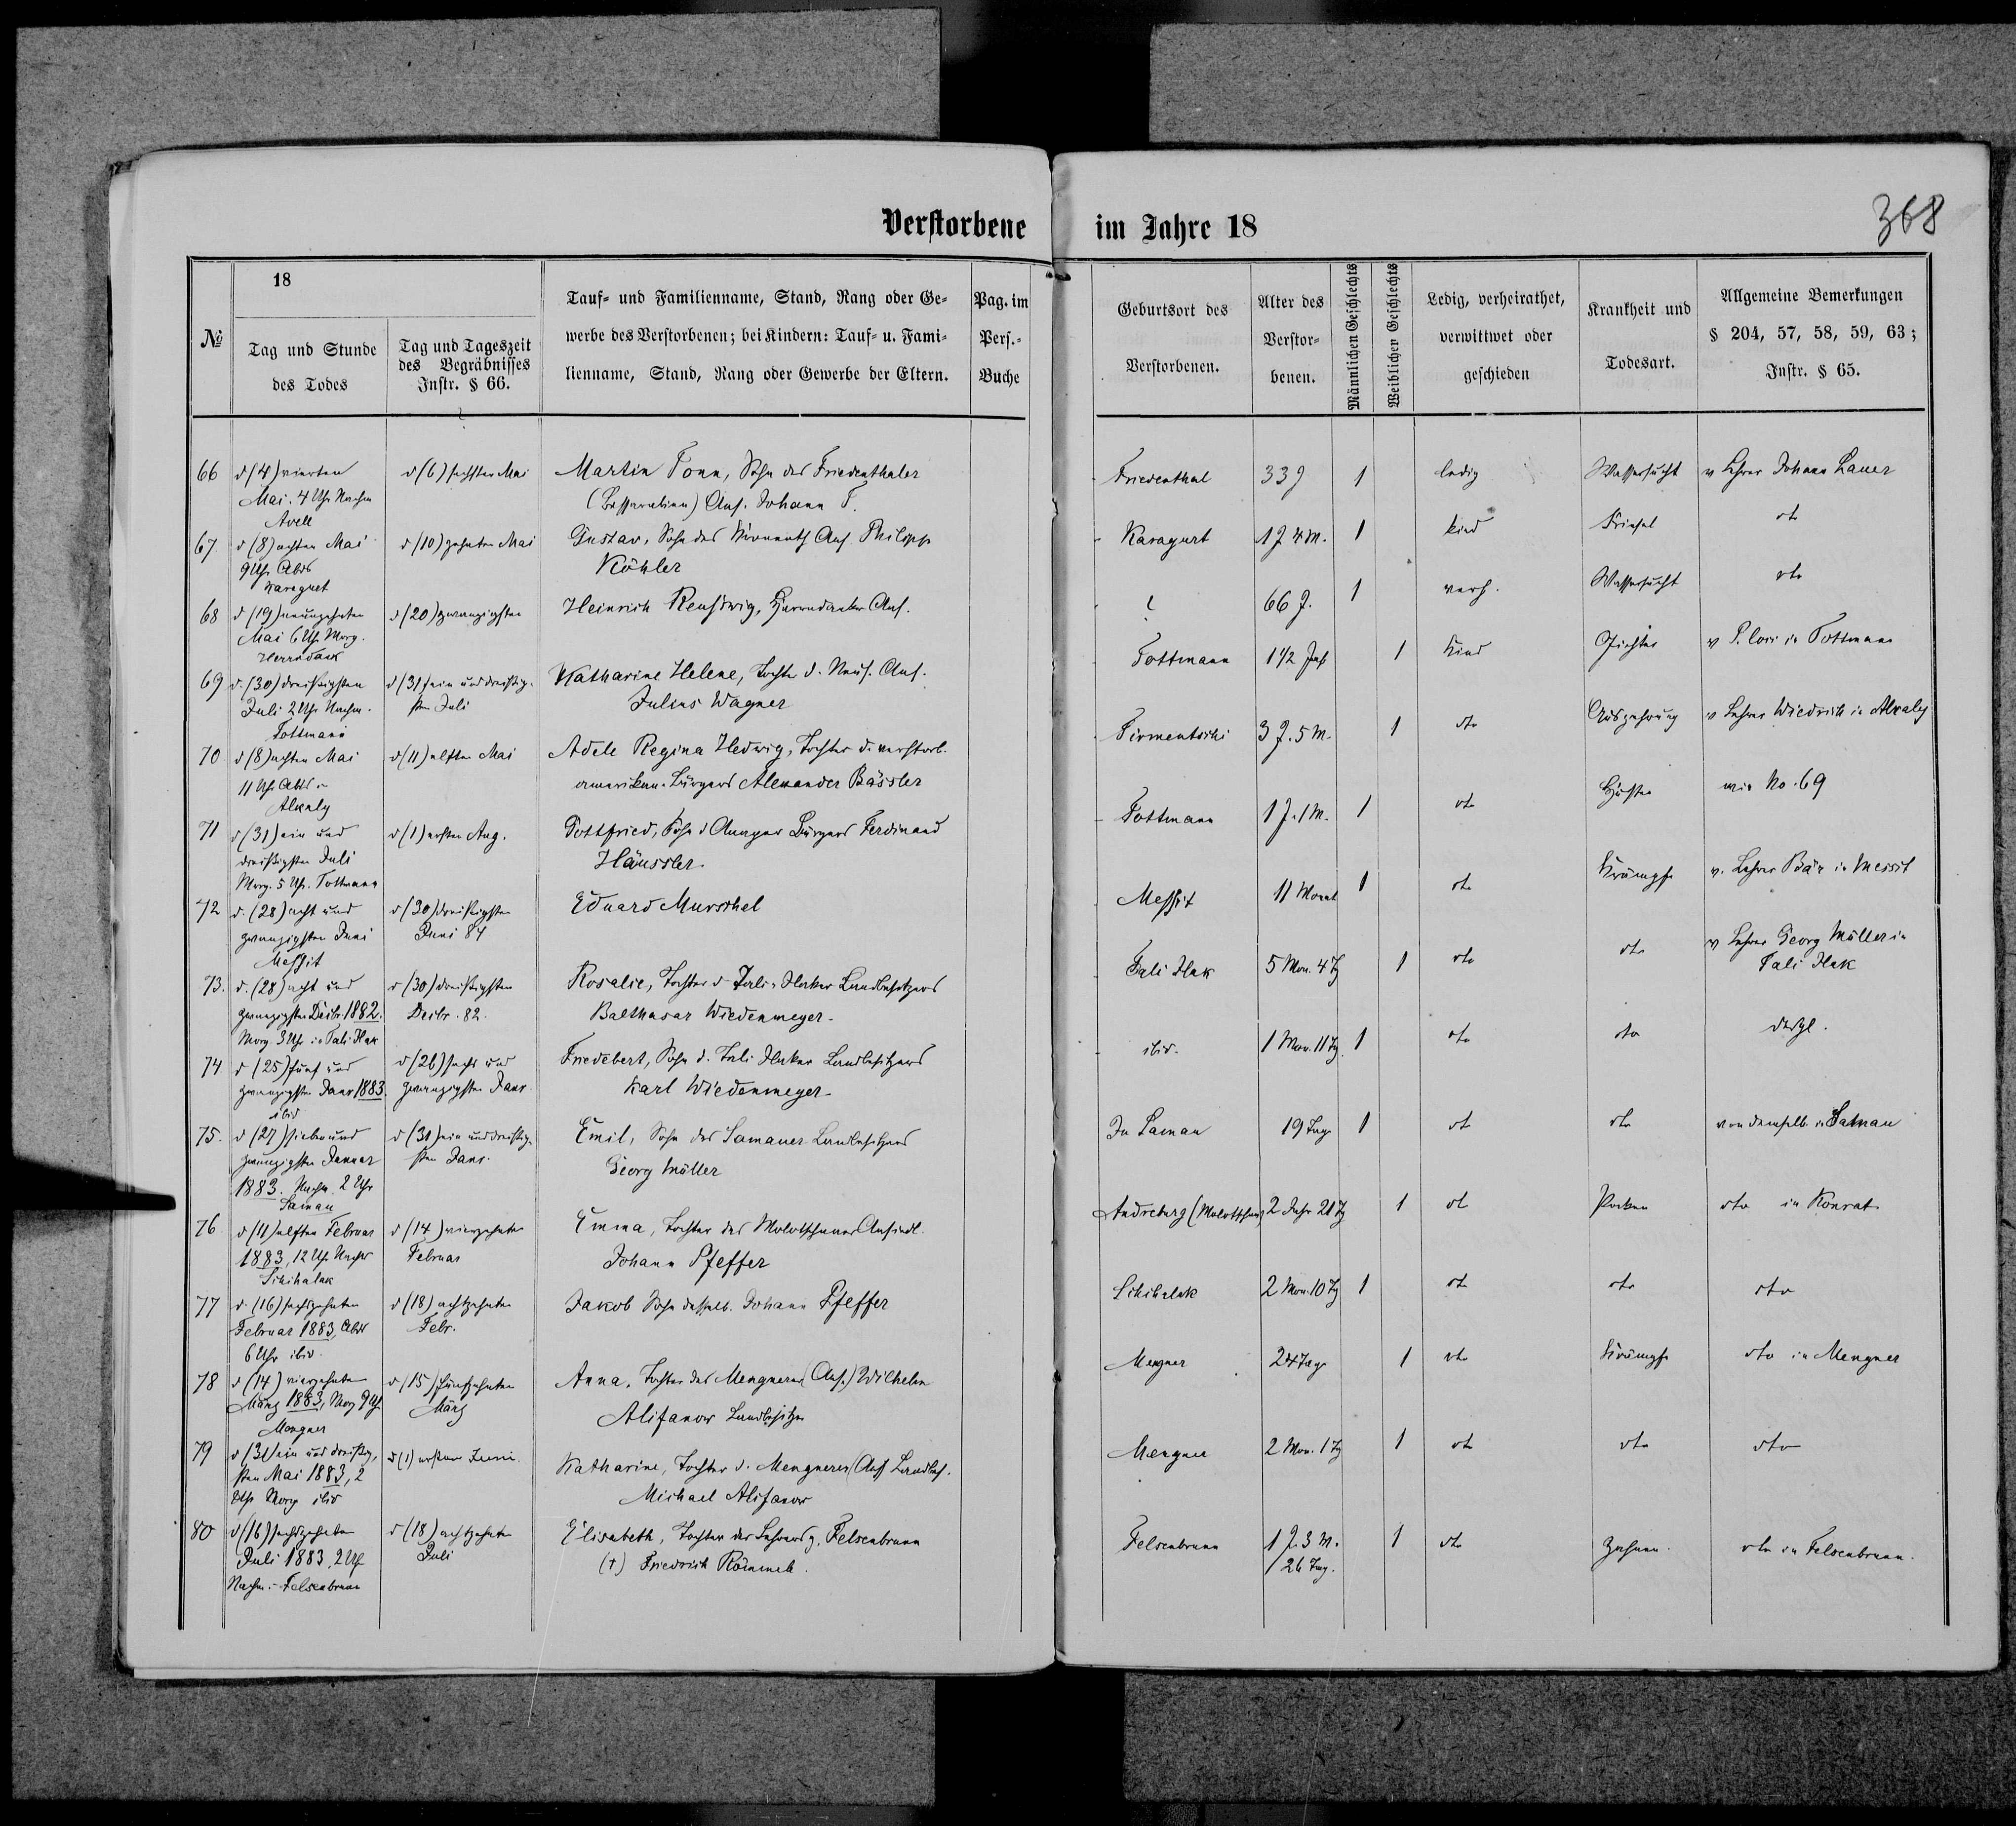 Verstorbene im Jahre 18
368
18
№
Tag und Stunde
des Todes
Tag und Tageszeit
des Begräbnisses
Instr. § 66.
Tauf- und Familienname, Stand, Rang oder Ge-
werbe des Verstorbenen; bei Kindern: Tauf- u. Fami-
lienname, Stand, Rang oder Gewerbe der Eltern.
Pag. im
Pers.-
Buche
Geburtsort des
Verstorbenen.
Alter des
Verstor-
benen.
Männlichen Geschlechts
Weiblichen Geschlechts
Ledig, verheirathet,
verwittwet oder
geschieden
Krankheit und
Todesart.
Allgemeine Bemerkungen
§ 204, 57, 58, 59, 63;
Instr. § 65.
66 d (4) vierten d (6) sechsten Mai Martin Tonn, Sohn des Friedenthaler Friedenthal 33 J 1 ledig Wassersucht v Lehrer Johann Lauer
Mai. 4 Uhr Nachm (Bessarabien) Ans. Johann T.
Avell
67. d (8) achten Mai d (10) zehnten Mai Gustav, Sohn des Ans. Philipp Karagurt 1 J 4 M. 1 Kind Friesel dto
9 Uhr Abds Köhler
Karagurt
68 d (19) neunzehnten d (20) zwanzigsten Heinrich Ans. ? 66 J. 1 verh. Wassersucht dto
Mai 6 Uhr Morg.
69 d. (30) dreißigsten d (31) ein und dreißig- Katharine Helene, Tochter d. Ans. Tottmann 1 1/2 Jahr 1 Kind Gichter v in Tottmann
Juli 2 Uhr Nachm. sten Juli Julius Wagner
Tottmann
70 d (8) achten Mai d (11) elften Mai Adele Regina Hedwig, Tochter d. verstorb. Firmentschi 3 J. 5 M. 1 dto Auszehrung v Lehrer Wiedrich in Alkaly
11 Uhr Abds amerikan. Bürgers Alexander Bässler
Alkaly
71 d (31) ein und d (1) ersten Aug. Gottfried, Sohn d Bürgers Ferdinand Tottmann 1 J. 1 M. 1 dto Husten wie No. 69
dreißigsten Juli Häussler
Morg. 5 Uhr. Tottmann
72 d. (28) acht und d (30) dreißigsten Eduard Murschel Messit 11 Monat 1 dto Krämpfe v. Lehrer Bär in Messit
zwanzigsten Juni Juni 84
Messit
73. d. (28) acht und d (30) dreißigsten Rosalie, Tochter d Tali-Ilaker Landbesitzers Tali Ilak 5 Mon. 4 Tg 1 dto dto v Lehrer Georg Müller in
zwanzigsten Decbr. 1882. Decbr. 82. Balthasar Wiedenmeyer Tali Ilak
Morg. 3 Uhr in Tali-Ilak
74 d (25) fünf und d (26) sechs und Friedebert, Sohn d. Tali Ilaker Landbesitzers ibid. 1 Mon. 11 Tg. 1 dto dto desgl.
zwanzigsten Janr 1883. zwanzigsten Janr Karl Wiedenmeyer
ibid
75. d (27) sieben und d (31) ein und dreißig- Emil, Sohn des Samaner Landbesitzers In Saman 19 Tage 1 dto dto von demselb. in Saman
zwanzigsten Januar sten Janr. Georg Müller
1883. Nachm. 2 Uhr
Saman
76 d (11) elften Februar d (14) vierzehnten Emma, Tochter des Molotschnaer Ansiedl. Andreburg (Molotschna) 2 Jahr 21 Tg 1 dto Pocken dto in Konrat
1883, 12 Uhr Februar Johann Pfeffer
Schihalak
77 d. (16) sechszehnten d (18) achtzehnten Jakob Sohn desselb. Johann Pfeffer Schihalak 2 Mon. 10 Tg 1 dto dto dto
Februar 1883, Abds Febr.
6 Uhr ibid.
78 d (14) vierzehnten d (15) fünfzehnten Anna, Tochter des Mengnerer (Ans.) Wilhelm Mengner 24 Tage 1 dto Krämpfe dto in Mengner
März 1883, Morg 9 Uhr März Alifanow Landbesitzer
Mengner
79 d (31) ein und dreißig- d (1) ersten Juni. Katharine, Tochter d. Mengnerer (Ans) Landbes. Mengner 2 Mon. 1 Tg 1 dto dto dto
sten Mai 1883, 2 Michael Alifanow
Uhr Morg ibid
80 d (16) sechszehnten d (18) achtzehnten Elisabeth, Tochter des Lehrers z. Felsenbrunn Felsenbrunn 1 J. 3 M. 1 dto Zahnen. dto in Felsenbrunn.
Juli 1883, 2 Uhr Juli (†) Friedrich Römmel. 26 Tag.
Nachm. Felsenbrunn